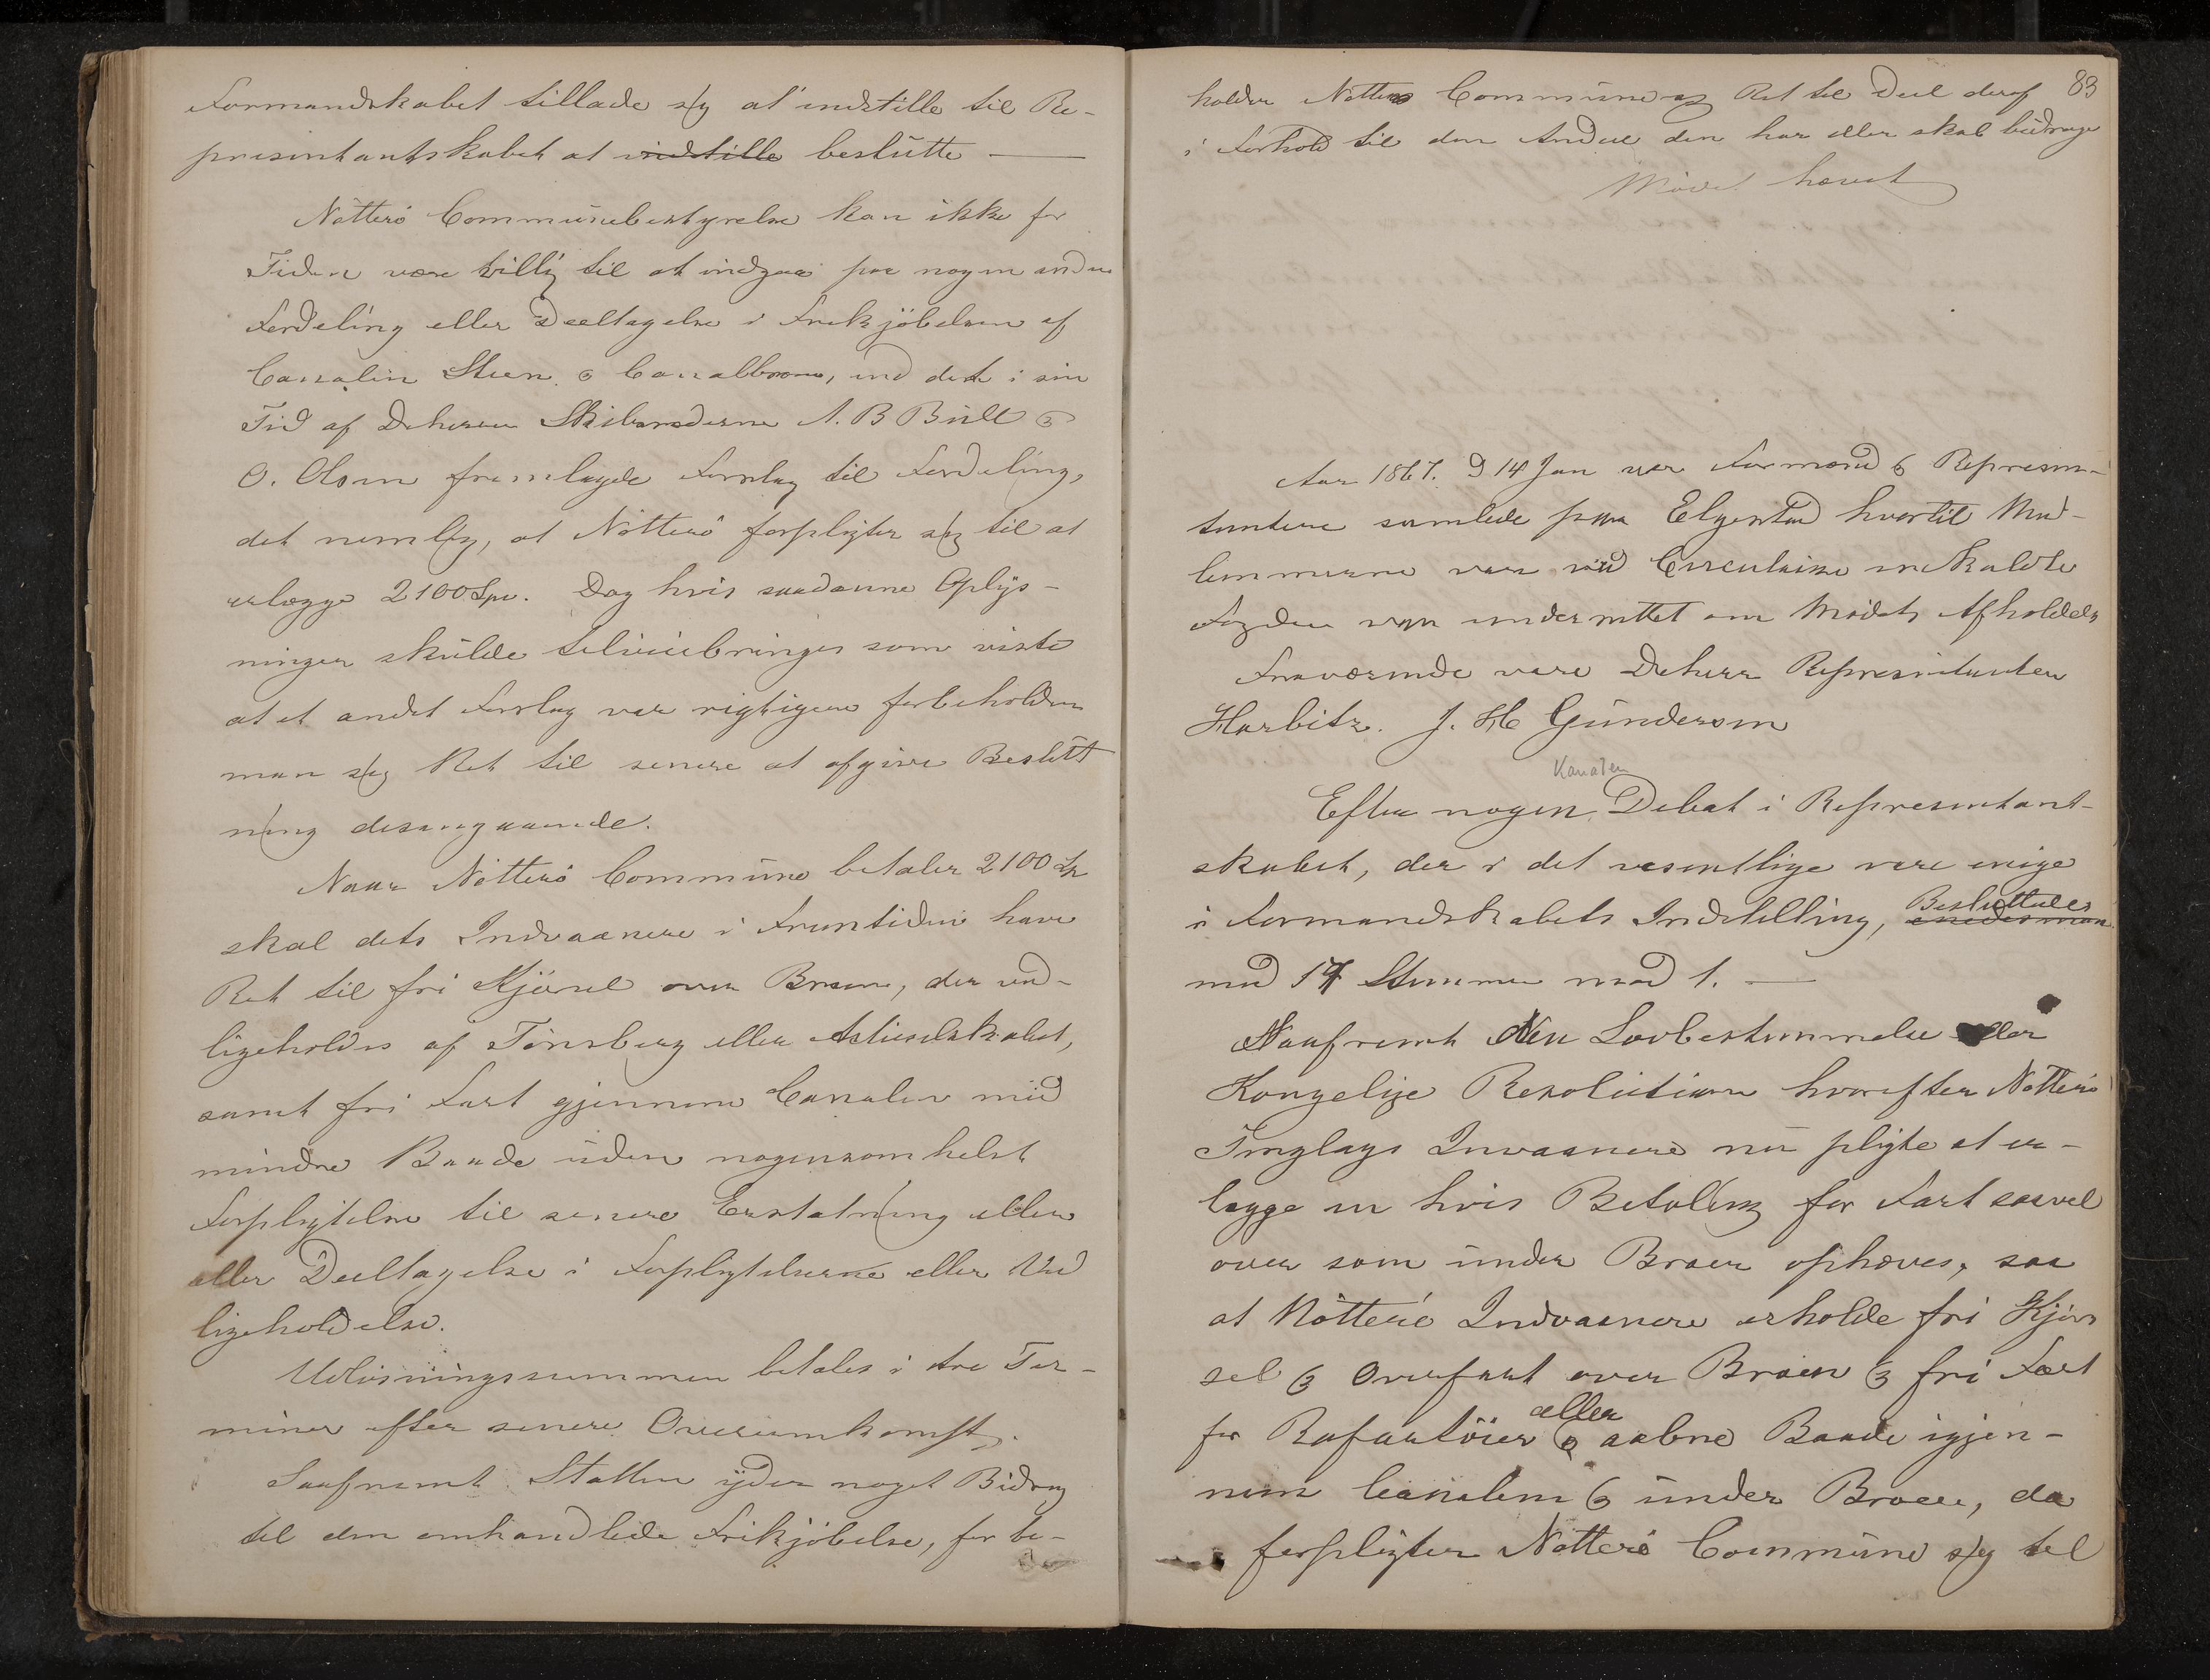 Formandskabet tillade sig at indstille til Re-
presentantskabet at indstille beslutte —
Nötterö Communebestyrelse kan ikke for
Tiden være villig til at indgaa paa nogen anden
Fordeling eller Deeltagelse i Frikjöbelsen af
Canalen Steen & Canalbroen, end det i sin
Tid af Dherrer Skibsrederne A. B Bull &
O. Olsen fremlagde Forslag til Fordeling,
det nemlig, at Nötterö forpligter sig til at
erlægge 2100 Spd. Dog hvis saadanne Oplys-
ninger skulde tilveiebringes som viste
at et andet Forslag var rigtigere forbeholder
man sig Ret til senere at afgive Beslutt
ning desangaaende.
Naar Nötterö Commune betaler 2100 Sp
skal dets Indvaanere i Fremtiden have
Ret til fri Kjörsel over Broen, der ved-
ligeholdes af Tönsberg eller Actieselskabet,
samt fri Fart gjennem Canalen med
mindre Baade uden nogensomhelst
Forpligtelse til senere Erstatning eller
eller Deeltagelse i Forpligtelserne eller Ved
ligeholdelse.
Udlösningssummen betales i tre Ter-
miner efter senere Overeenkomst.
Saafremt Staten yder noget Bidrag
til den omhandlede Frikjöbelse, for be-
83
holder Nötterö Commune sig Ret til Deel deraf
i Forhold til den Andeel den har eller skal bidrage
Mödet hævet
Aar 1867. D 14 Jan var Formænd & Represen-
tantere samlede paa Elgestad hvortil Med-
lemmerne vare ved Circulaire indkaldte
Fogden var underrettet om Mödets Afholdelse
Fraværende vare Dherrer Representanter
Harbitz. J. H Gundersen
Kanalen
Efter nogen Debat i Representant-
skabet, der i det væsentlige vare enige
i Formandskabets Indstilling, Besluttedes
enedes man
med 17 Stemmer mod 1. —
Saafremt den Lovbestemmelse eller
Kongelige Resolution hvorefter Nötterö
Tinglags Invaanere nu pligte at er-
lægge en hvis Betaling for Fart saavel
over som under Broen ophæves, saa
at Nötterö Indvaanere erholde fri Kjör
sel & Overfart over Broen & fri Fart
eller
for Rofartöier & aabne Baade igjen-
nem Canalen & under Broen, da
forpligter Nötterö Commune sig til